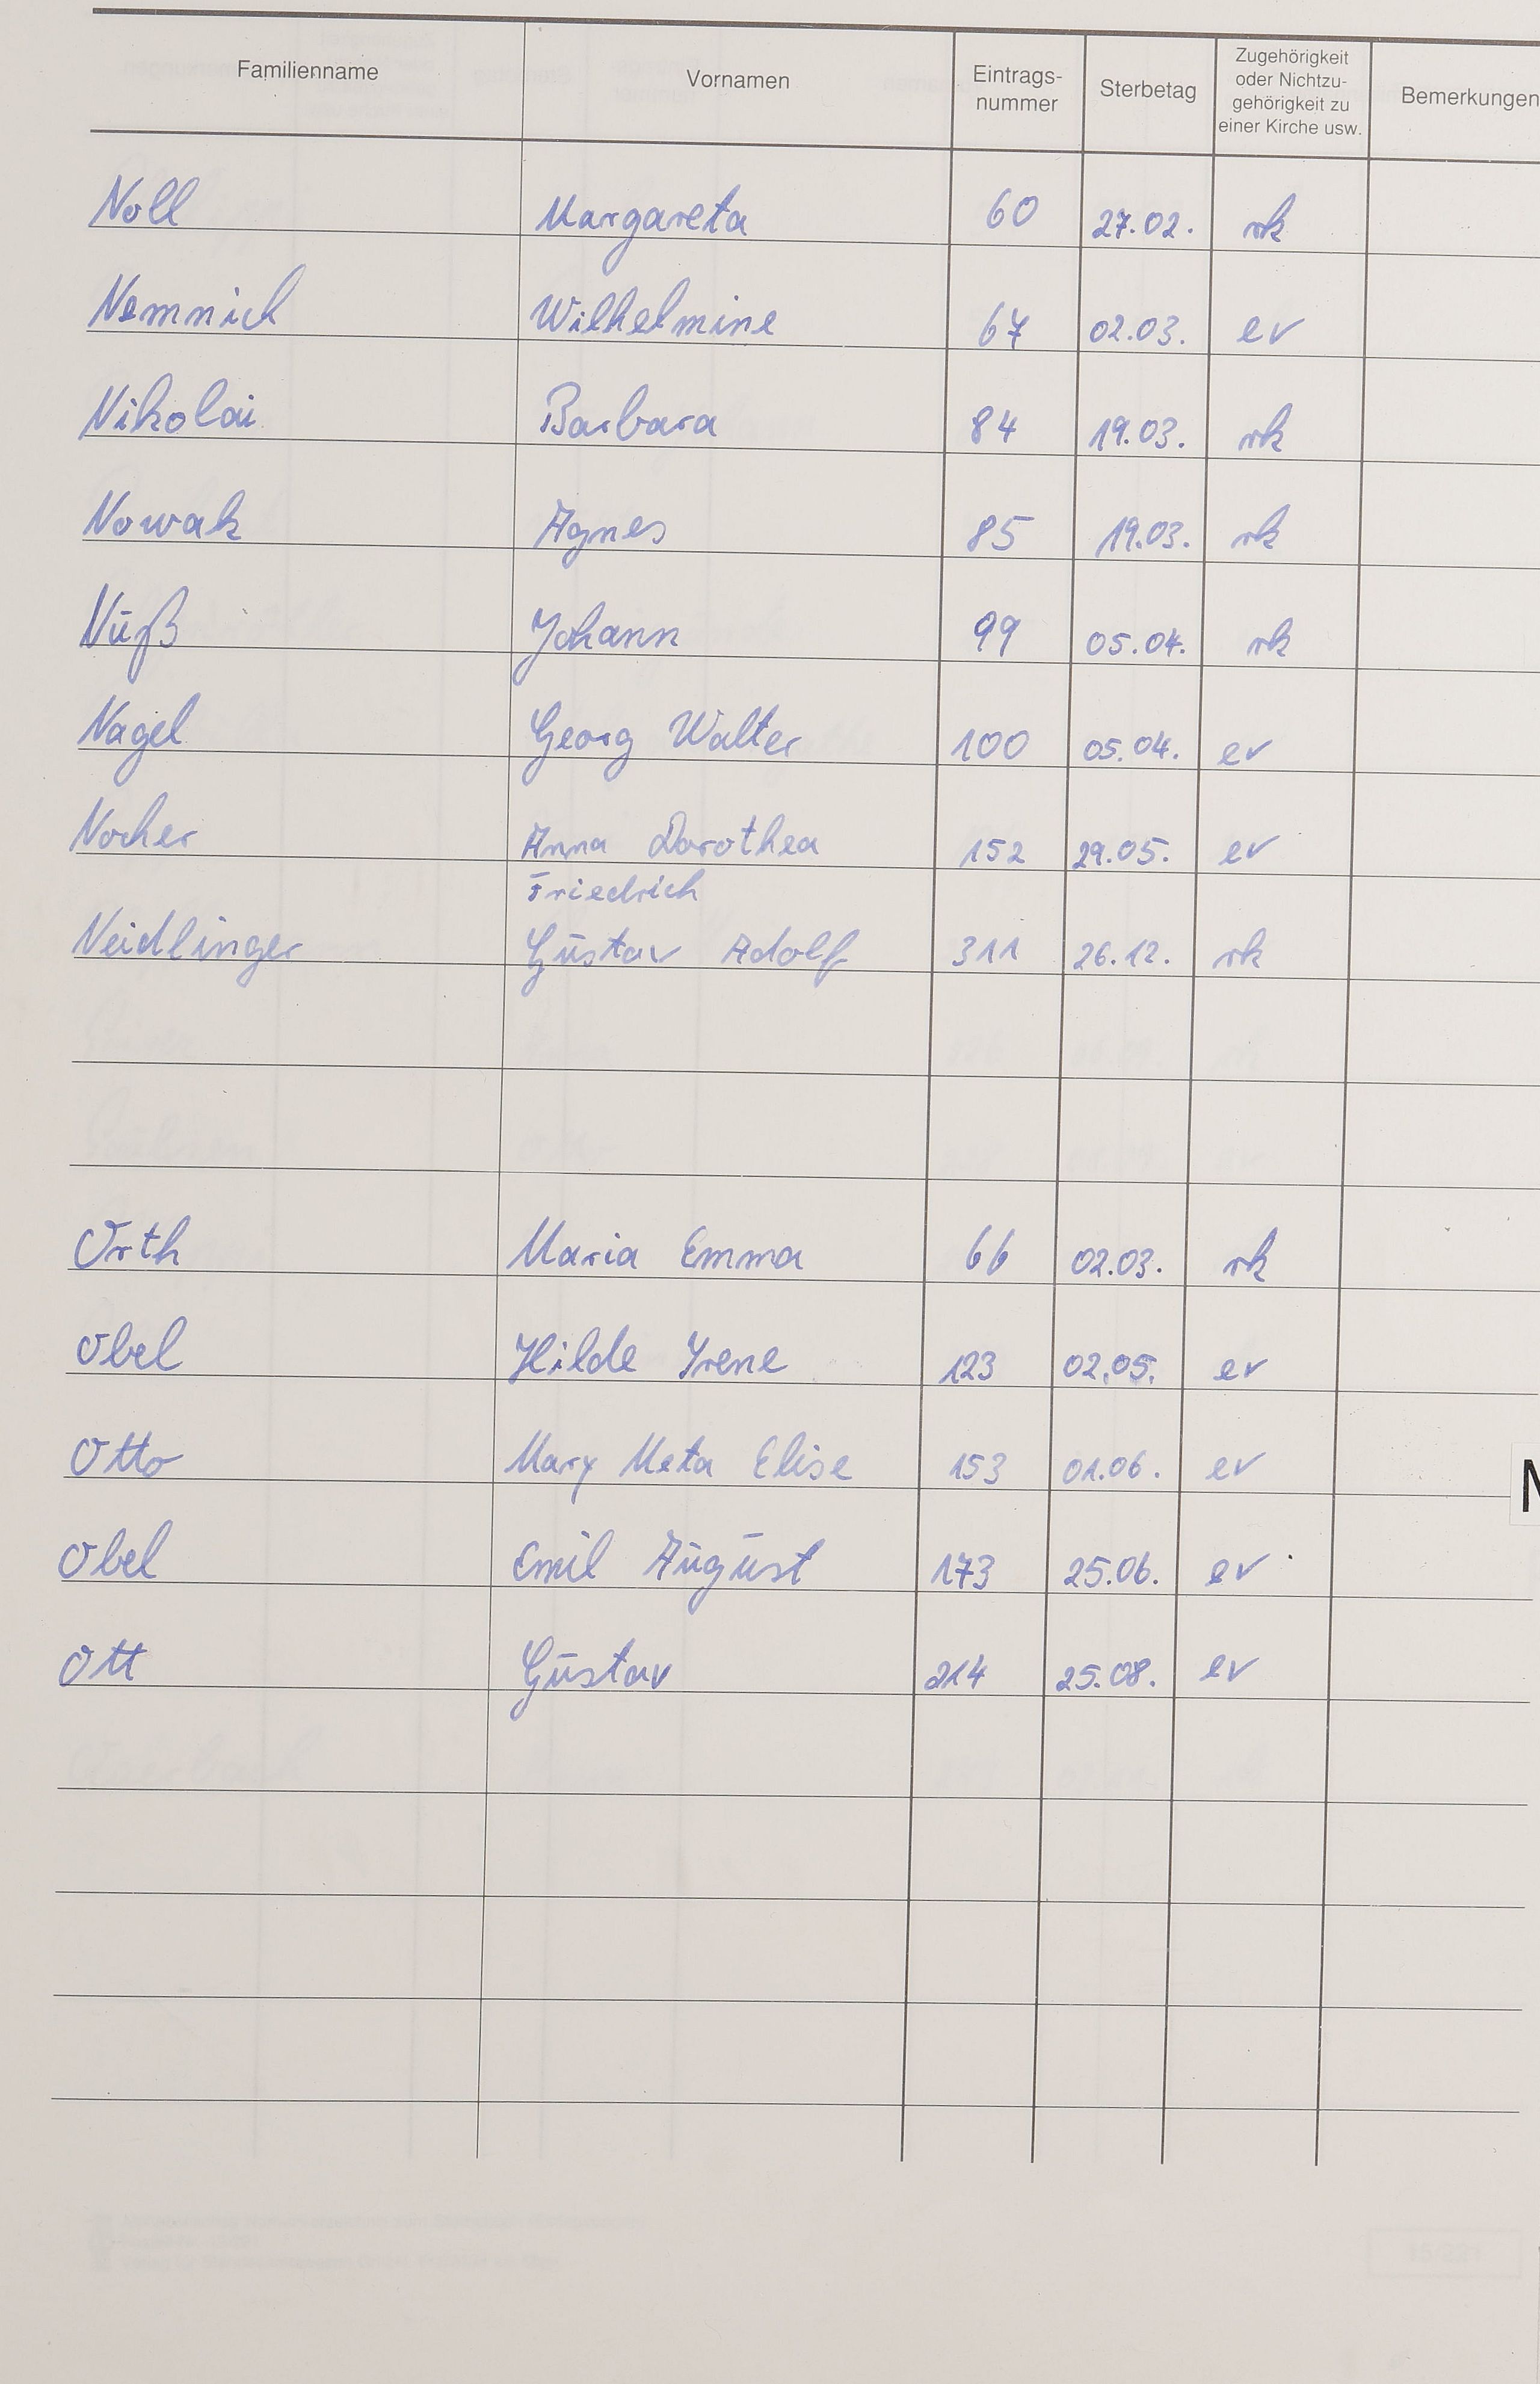 Familienname Vornamen Eintrags-nummer Sterbetag Zugehörigkeit oder Nichtzu-gehörigkeit zu einer Kirche usw. Bemerkungen
Noll Margareta 60 27.02. rk
Nemnich Wilhelmine 67 02.03. ev
Nikolai Barbara 84 19.03. rk
Nowak Agnes 85 19.03. rk
Nuß Johann 99 05.04. rk
Nagel Georg Walter 100 05.04. ev
Nocher Anna Dorothea 152 29.05. ev
Friedrich
Neidlinger Gustav Adolf 311 26.12. rk
Orth Maria Emma 66 02.03. rk
Obel Hilde Irene 123 02.05. ev
Otto Mary Meta Elise 153 01.06. ev
Obel Emil August 173 25.06. ev
Ott Gustav 214 25.08. ev